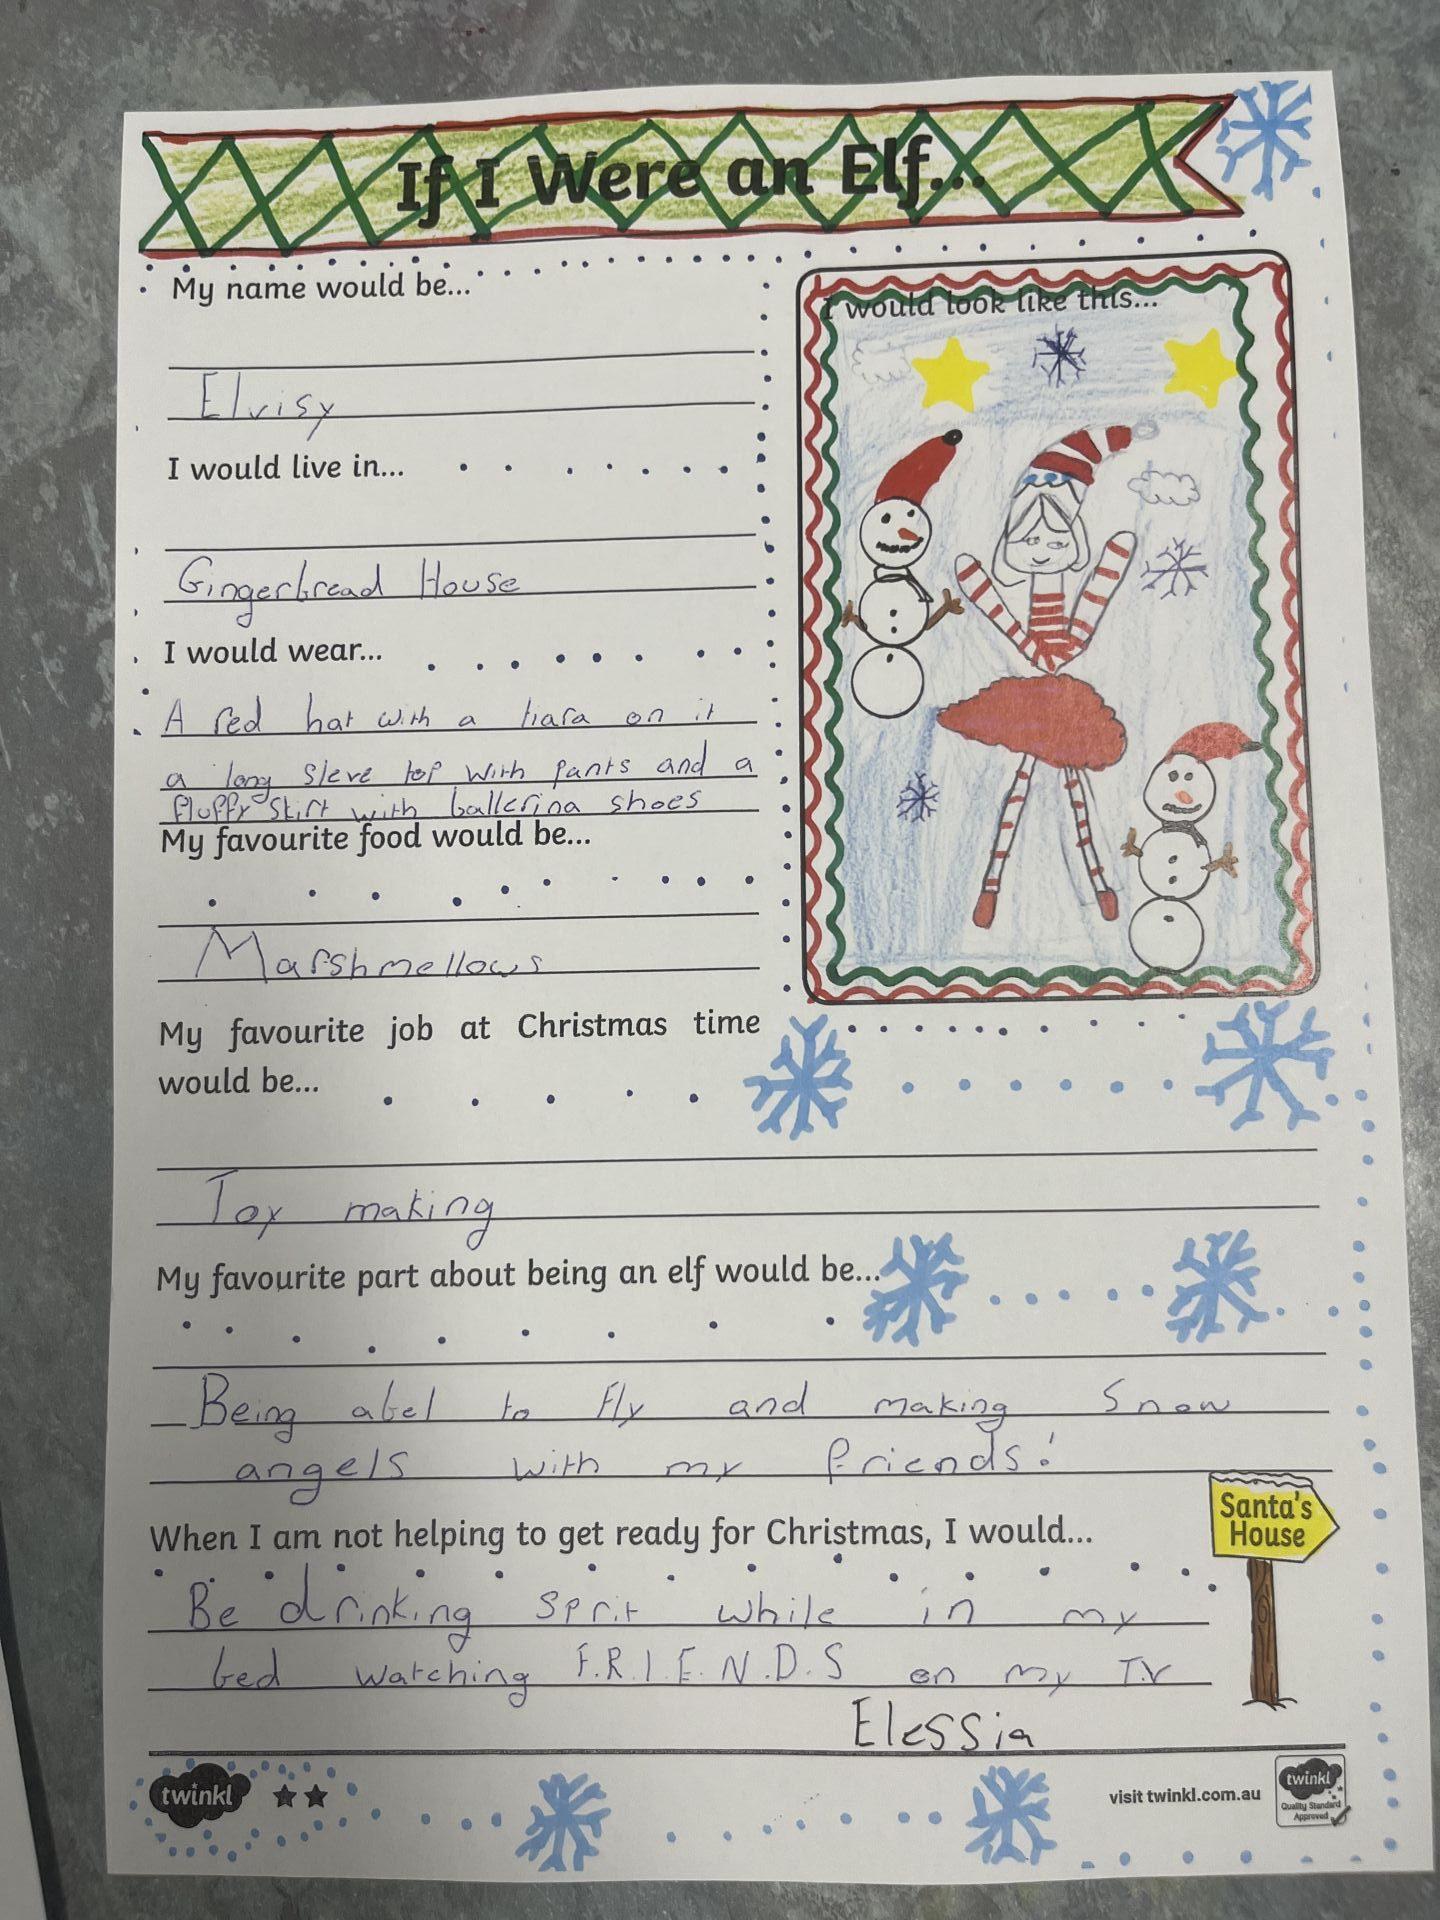 If I Were an Elf...
My name would be...
Elvisy
I would live in...
Gingerbread House
I would wear...
A red hat with a tiara on it
a long sleve top with pants and a
fluffy skirt with ballerina shoes
My favourite food would be...
Marshmellows
I would look like this...
My favourite job at Christmas time
would be...
Toy making
My favourite part about being an elf would be...
Being abel to fly and making Snow
angels with my friends!
When I am not helping to get ready for Christmas, I would...
Be drinking sprit while in my
bed watching F.R.I.E.N.D.S on my T.V
Santa's
House
Elessia
twinkl
visit twinkl.com.au
twinkl
Quality Standard
Approved